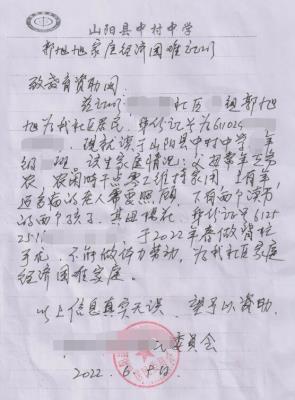 山阳县中村中学
郭旭旭家庭经济困难证明
致教育资助网:
兹证明 社区 组郭旭
旭为我社区居民,身份证号为611025
,现就读于山阳县中村中学 年
级 班,该生家庭情况:父郭常年在家务
农,农闲时干点零工维持家用,上有年
迈多病的老人需要照顾,下有两个读书
的两个孩子,其母 ,身份证号6125
25 于2022年春做脊柱
手术,不能做体力劳动,为我社区家庭
经济困难家庭。
以上信息真实无误,望予以资助
委员会
2022.6. 日